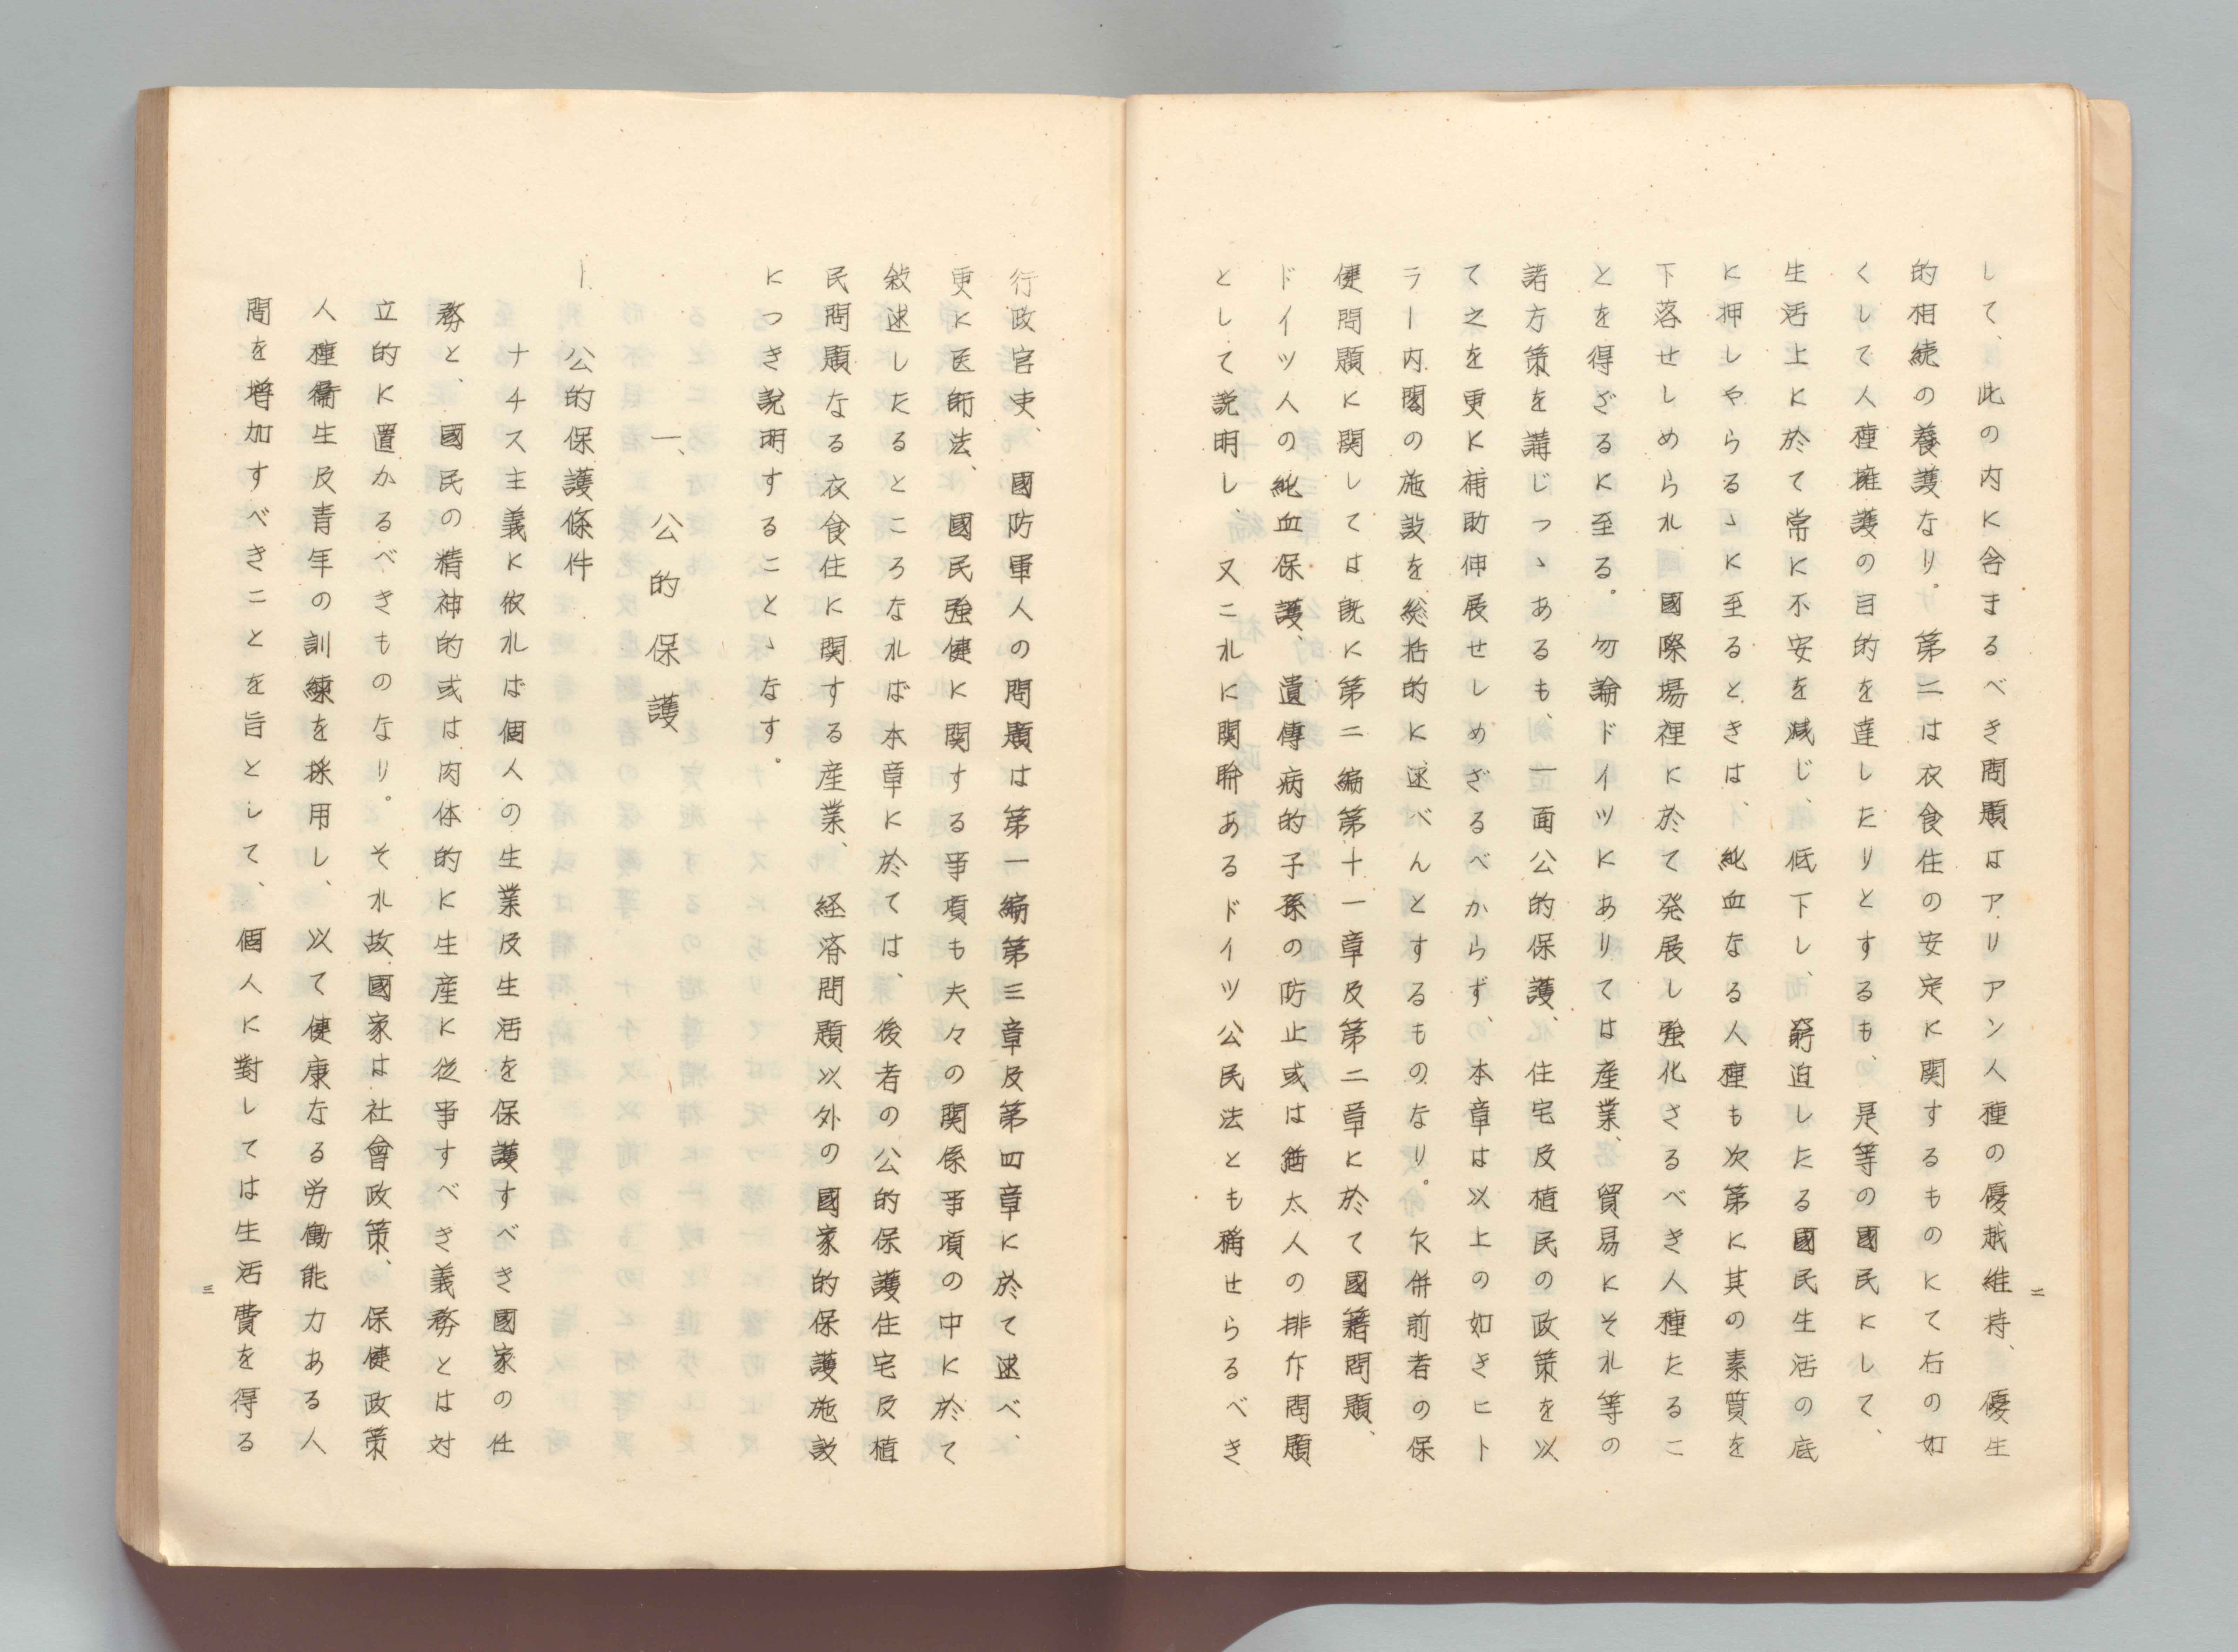 二
して、此の内に含まるべき問題はアリアン人種の優越維持、優生
的相続の養護なり。第二は衣食住の安定に関するものにて右の如
くして人種擁護の目的を達したりとするも、是等の國民にして、
生活上に於て常に不安を減じ、低下し、窮迫したる國民生活の底
に押しやらるゝに至るときは、純血なる人種も次第に其の素質を
下落せしめられ、國際場裡に於て発展し強化さるべき人種たるこ
とを得ざるに至る。勿論ドイツにありては産業、貿易にそれ等の
諸方策を講じつゝあるも、一面公的保護、住宅及植民の政策を以
て之を更に補助伸展せしめざるべからず、本章は以上の如きヒト
ラー内閣の施設を総括的に述べんとするものなり。欠併前者の保
健問題に関しては既に第二編第十一章及第二章に於て國籍問題、
ドイツ人の純血保護、遺傳病的子孫の防止或は猶太人の排斥問題
として説明し、又これに関聯あるドイツ公民法とも稱せらるべき
行政官吏、國防軍人の問題は第一編第三章及第四章に於て述べ、
更に医師法、國民強健に関する事項も夫々の関係事項の中に於て
敘述したるところなれば本章に於ては、後者の公的保護住宅及植
民問題なる衣食住に関する産業、経済問題以外の國家的保護施設
につき説明することゝなす。
一、公的保護
ト、公的保護條件
ナチス主義に依れば個人の生業及生活を保護すべき國家の任
務と、國民の精神的或は肉体的に生産に従事すべき義務とは対
立的に置かるべきものなり。それ故國家は社會政策、保健政策
人種衛生及青年の訓練を採用し、以て健康なる労働能力ある人
間を増加すべきことを旨として、個人に對しては生活費を得る
三